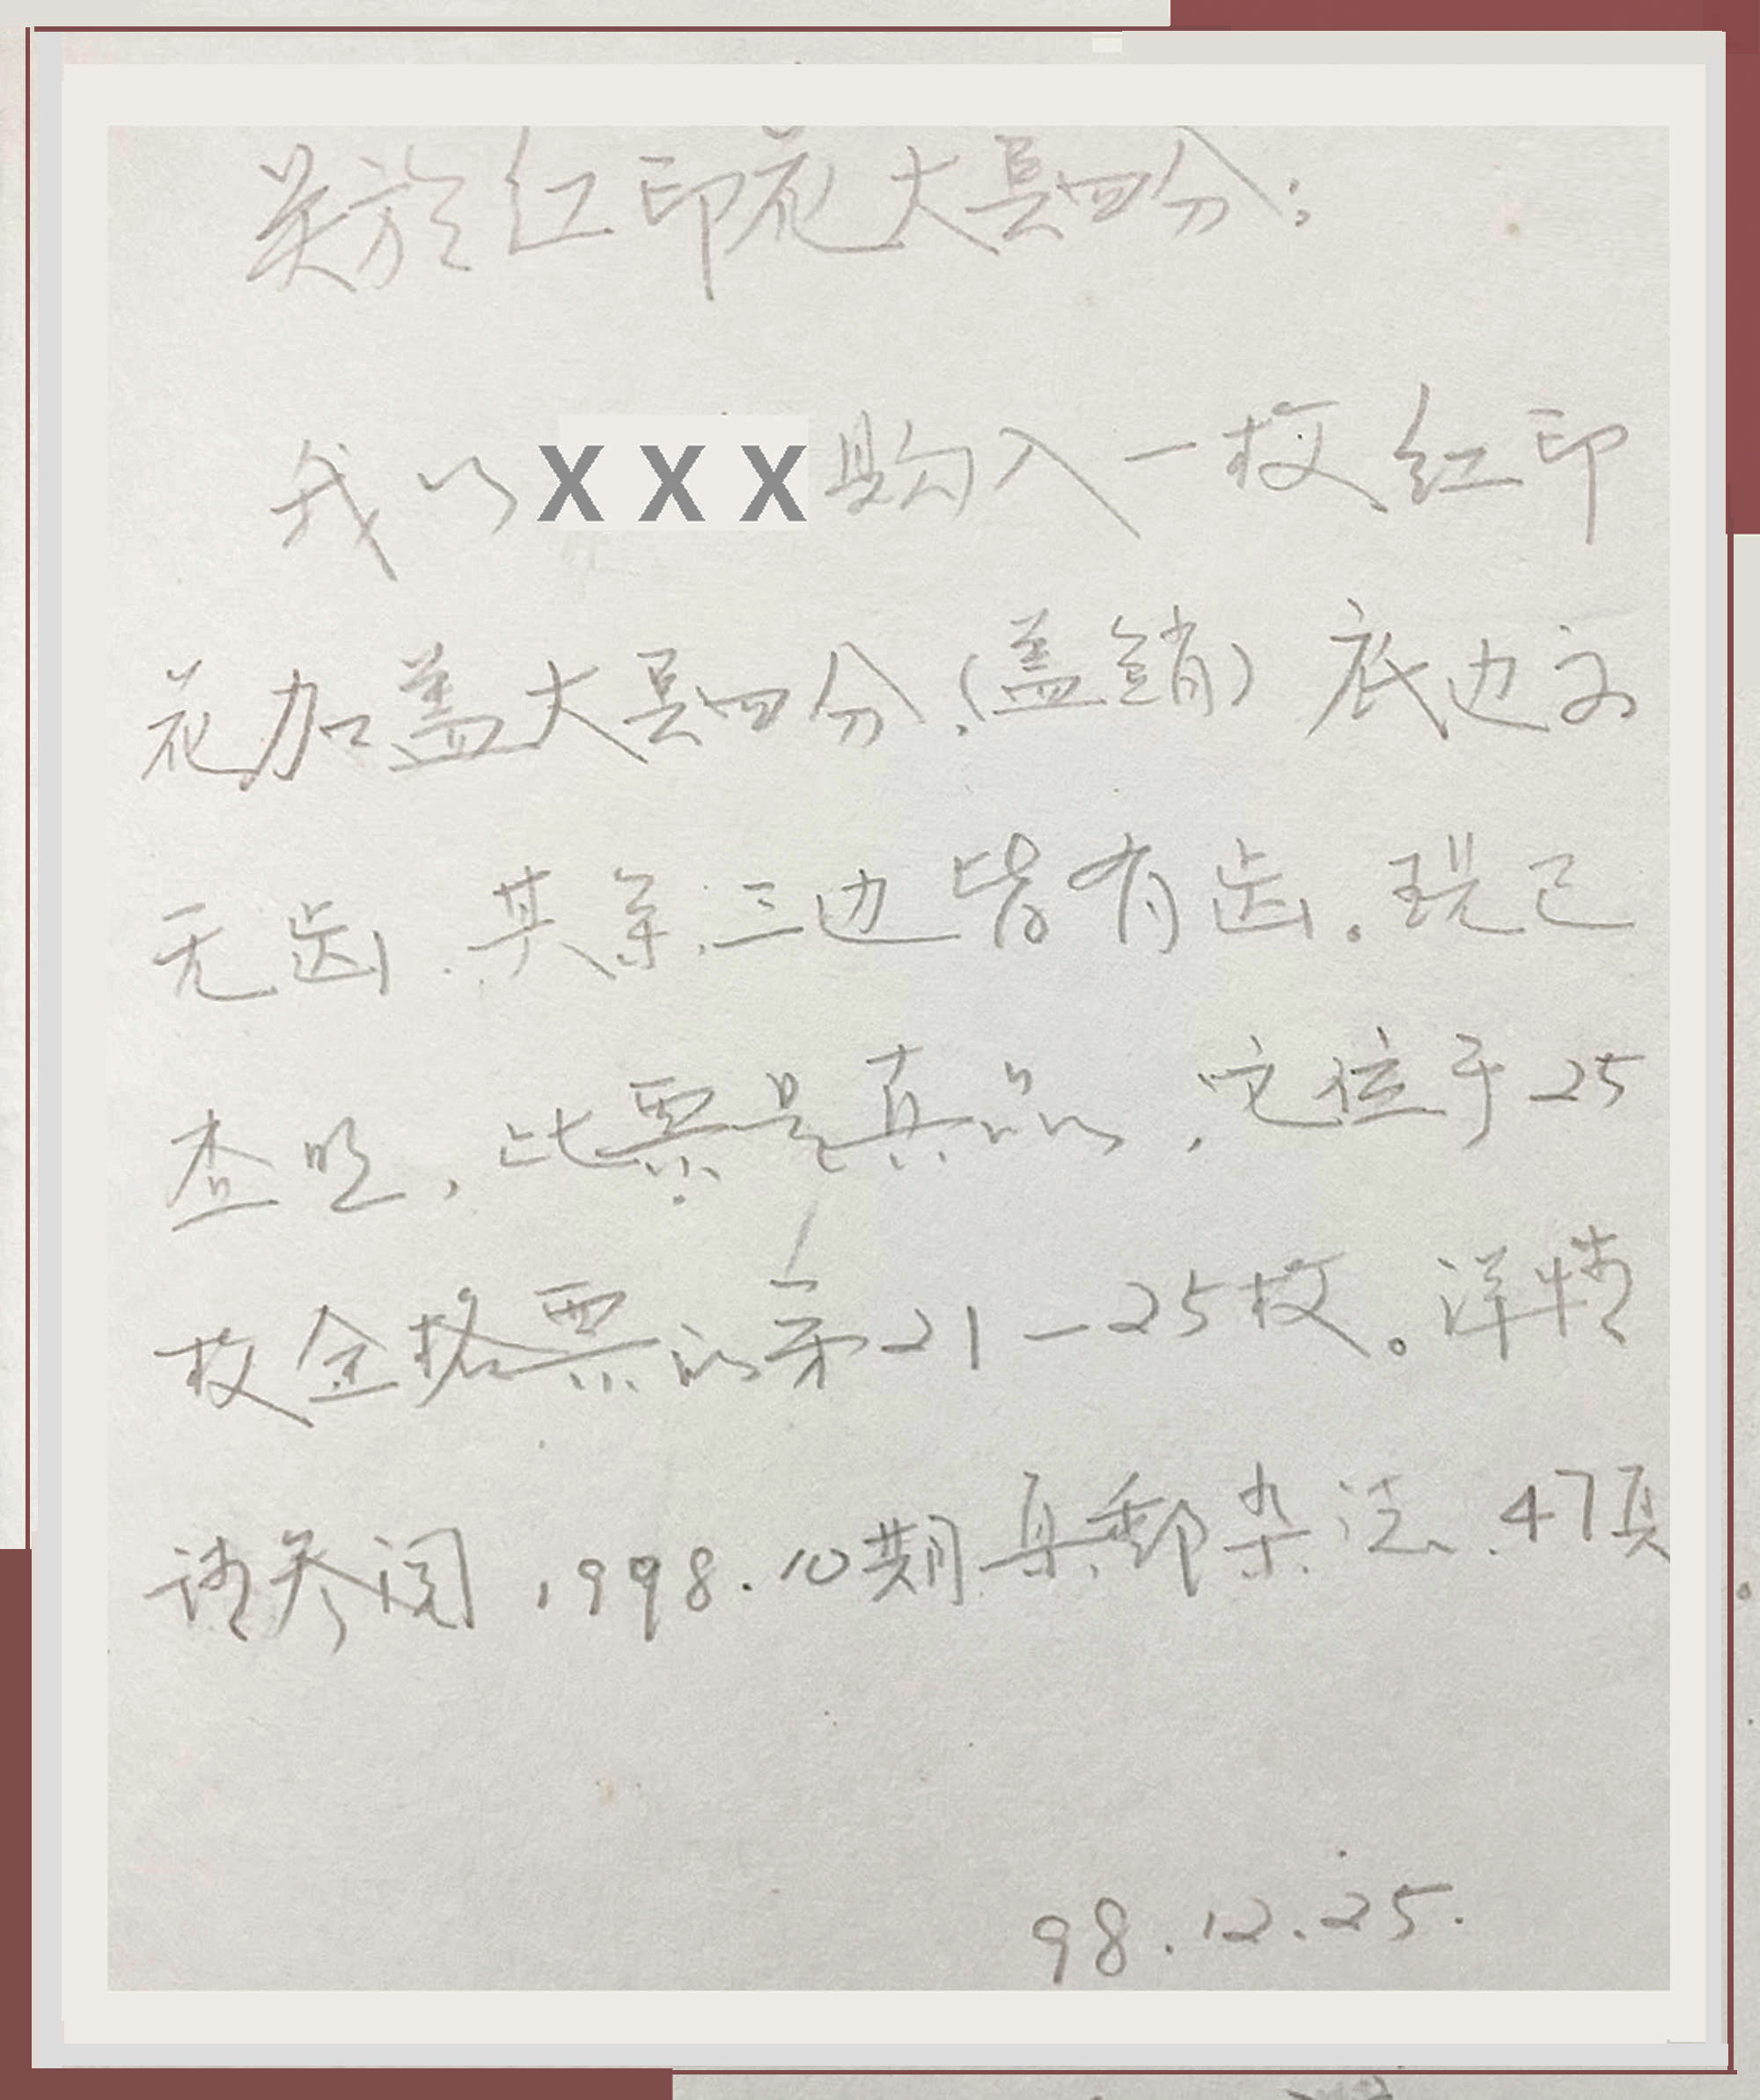 关於红印花大号四分:
我以XXX购入一枚红印
花加盖大号四分,(盖销)底边为
无齿.其余三边皆有齿。现已
查明,此票是真品,它位于25
枚全格票的第21—25枚。详情
请参阅,1998.10期集邮杂志.47页
98.12.25.